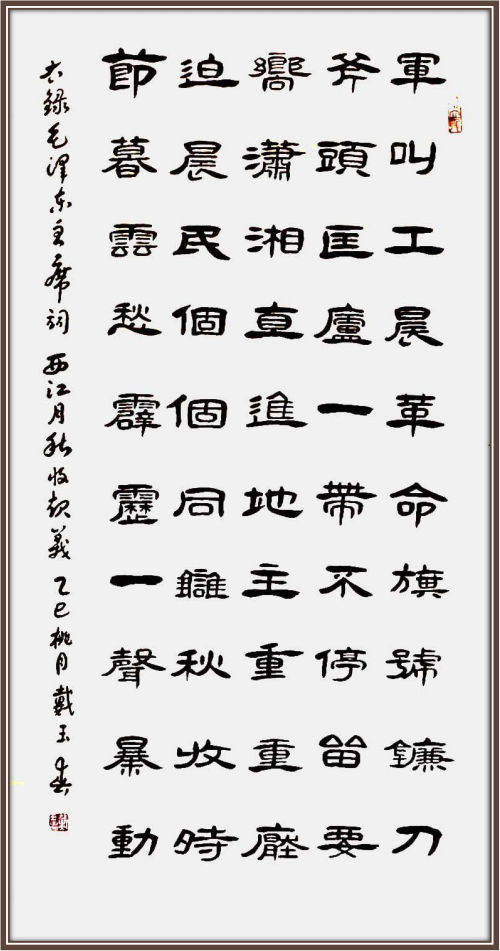 軍叫工晨革命旗號鐮刀
斧頭匡廬一帶不停留要
嚮瀟湘直進地主重重壓
迫晨民個個同讎秋收時
節暮雲愁霹靂一聲暴動
右録毛澤东主席詞 西江月秋收起義 乙巳桃月戴玉